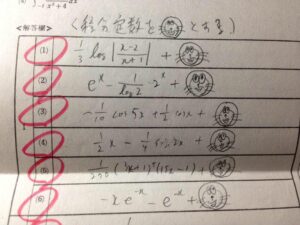 -1 x²+4
(積分定数を とする)
<解答欄>
(1) 1/3 log |x-2/x+1| +
(2) eˣ - 1/log2 · 2ˣ +
(3) -1/10 cos5x + 1/2 cosx +
(4) 1/2 x - 1/4 sin2x +
(5) (3x+1)⁴(12x-1) +
(6) -xe⁻ˣ - e⁻ˣ +